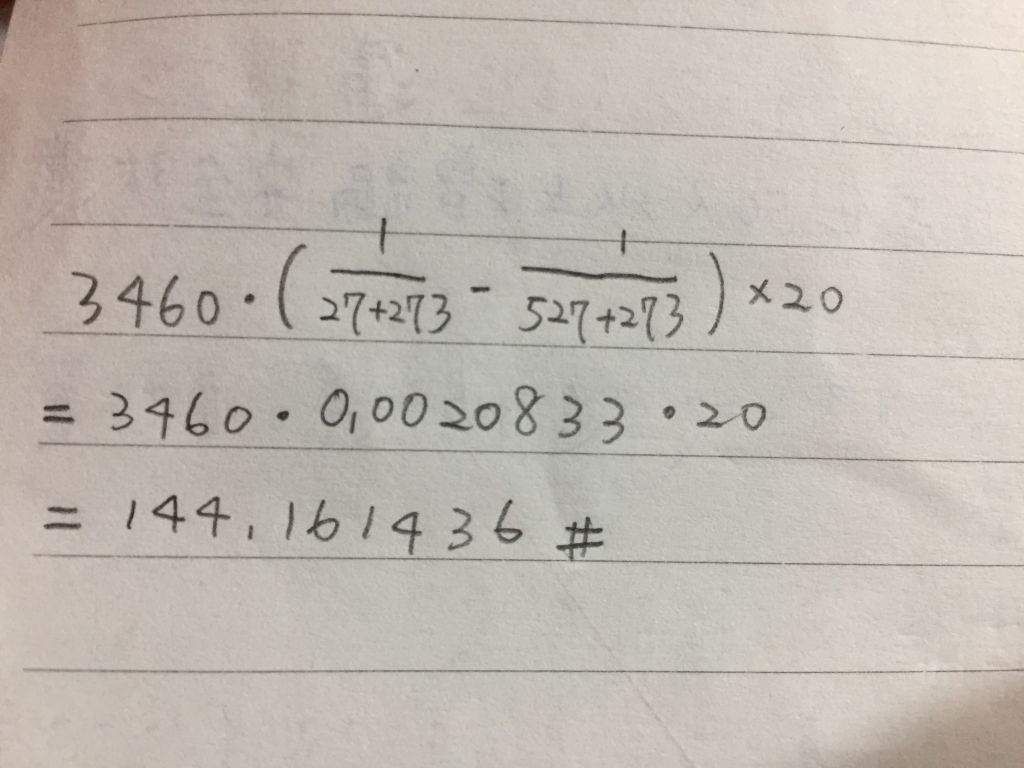 3460·(1/(27+273) - 1/(527+273))×20
= 3460·0.0020833·20
= 144.161436 #